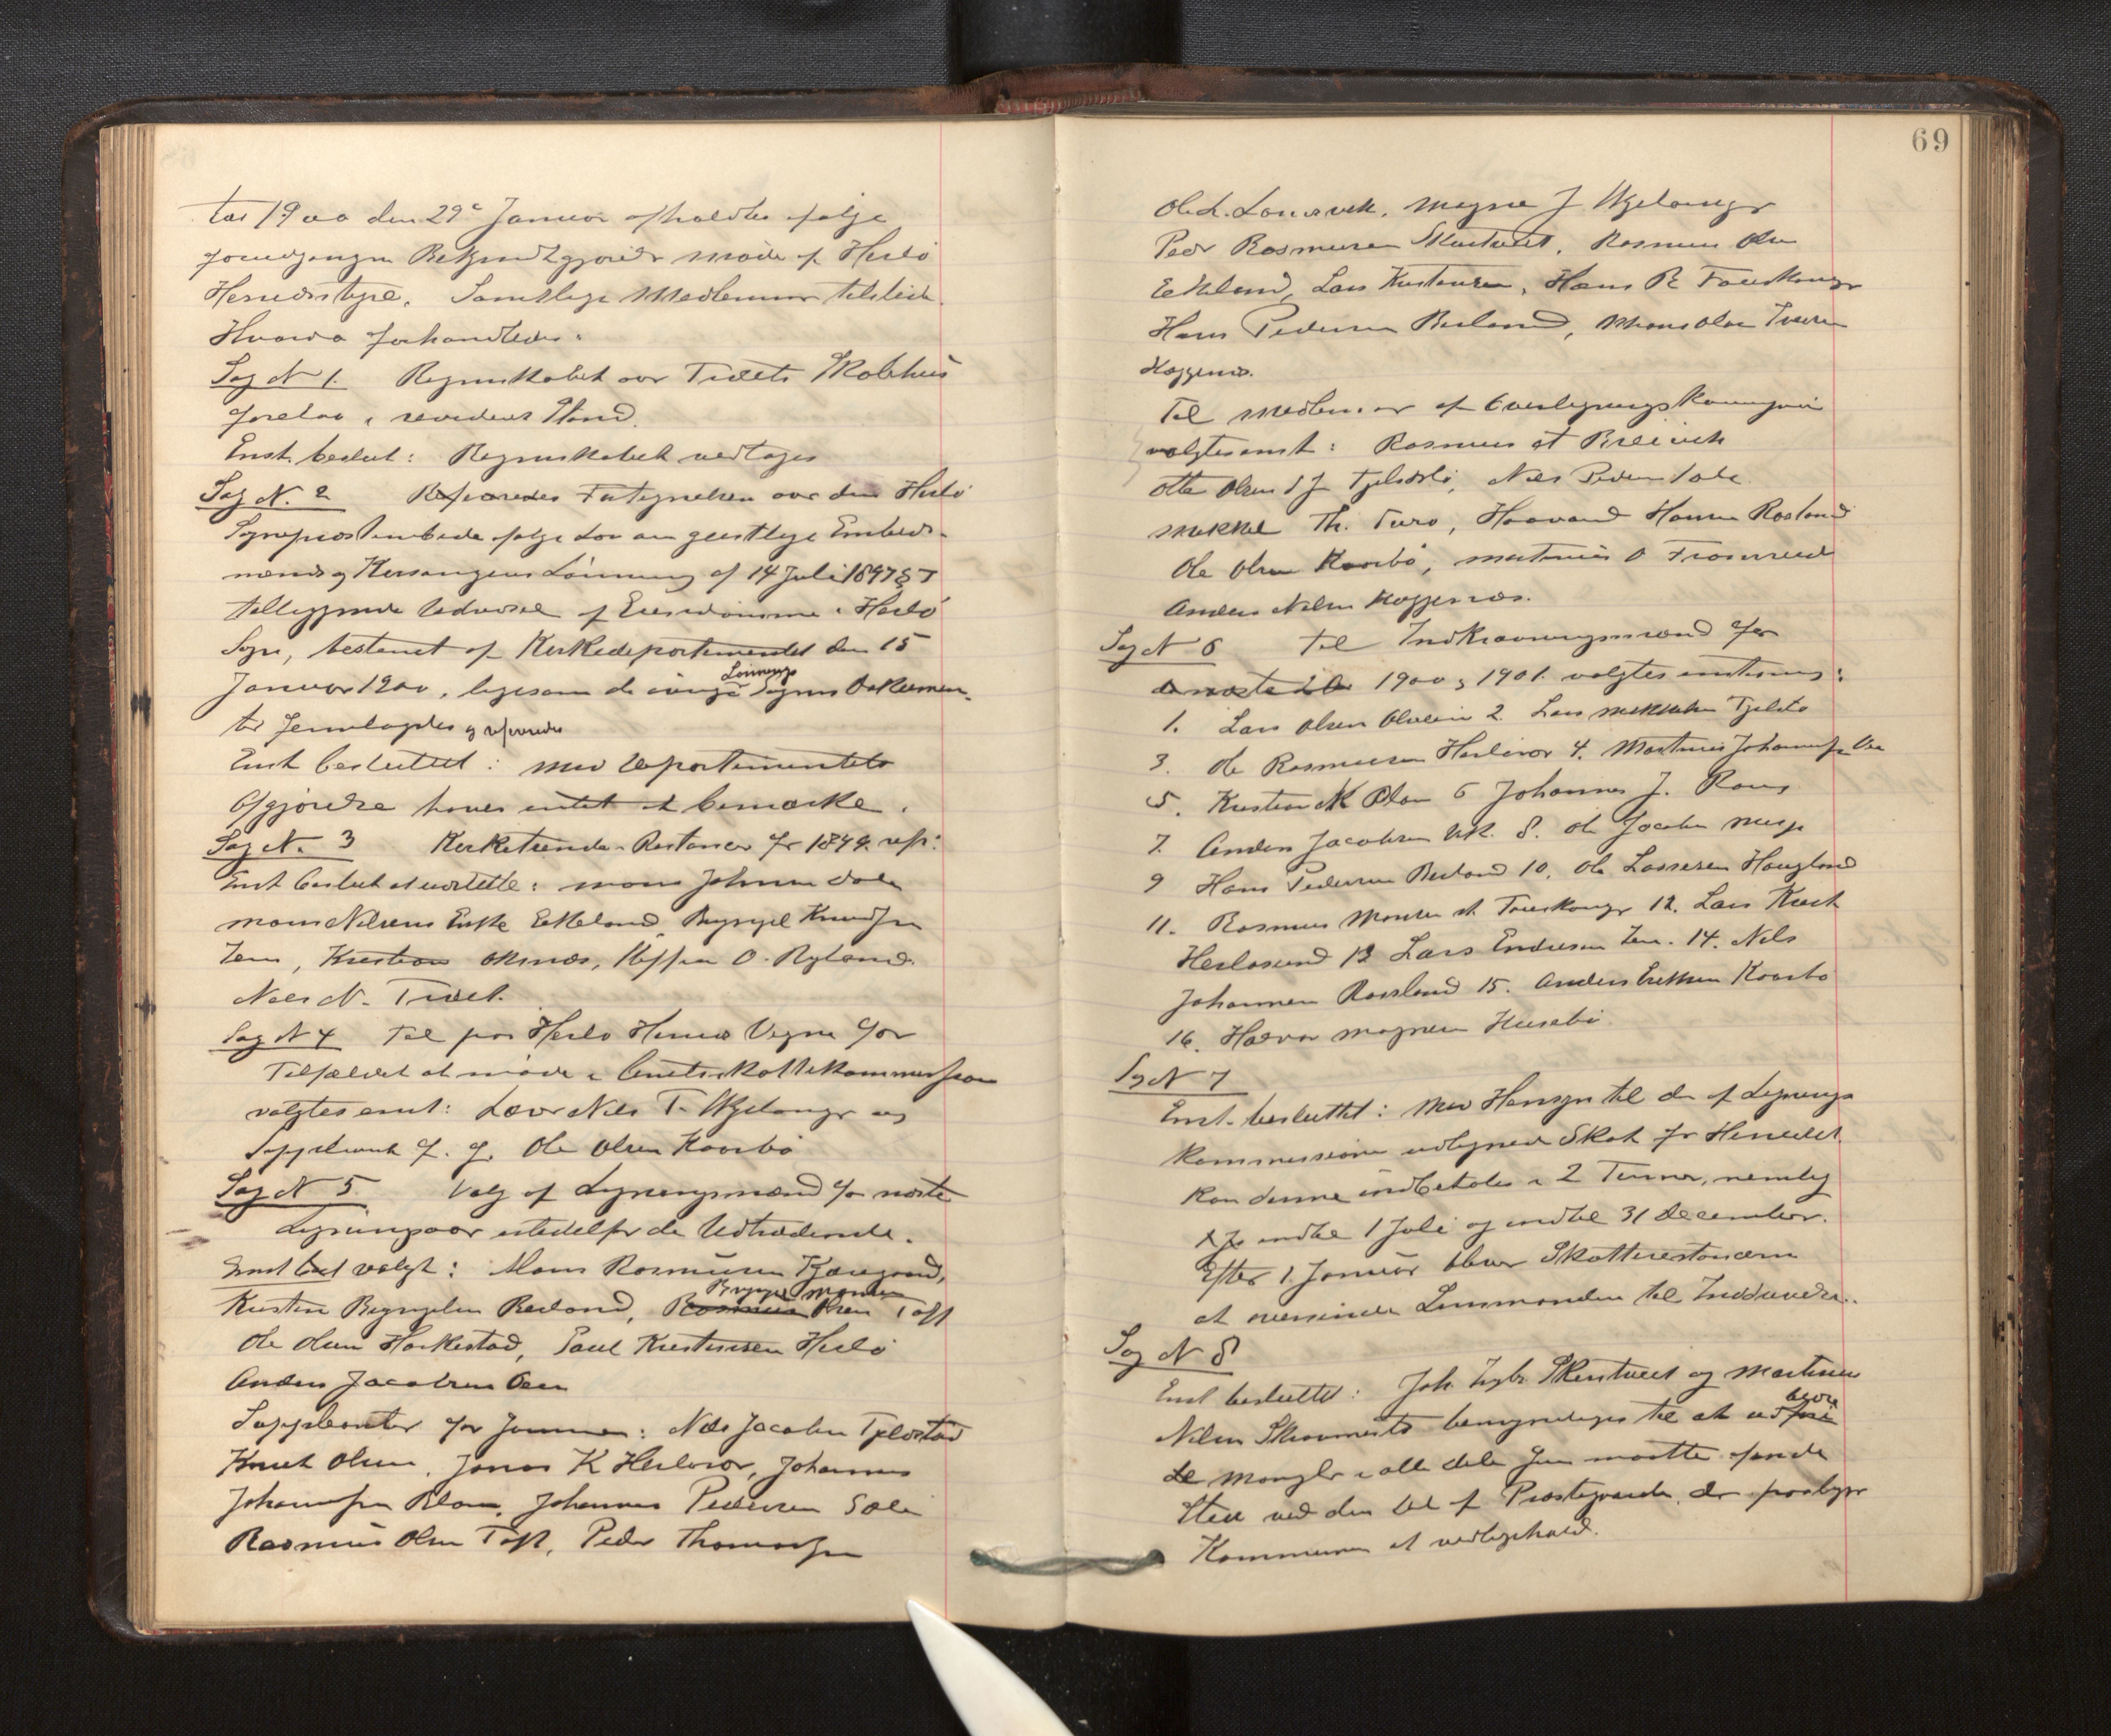 Aar 1900 den 29de Januar afholdtes efter
foreudgangen Bekjendtgjørelse møde af Herlø
Herredsstyre. Samtlige Medlemmer tilstede.
Hvorda forhandledes:
Sag N 1. Regnskabet over Tvedts Skolehus
forelaa i revideret Stand.
Enst. beslut: Regnskabet vedtages
Sag N. 2 Refereredes Fortegnelsen over den Herlø
Sogneprestembede ifølge Lov om geistlige Embeds-
mænds og Kirkesangeres Lønning af 14 Juli 1897 § 7
tilliggende Udnørsel af Eiendomme i Herlø
Sogn, bestemt af Kirkedepartementet den 15
Januar 1900, ligesom de øvrige Lønnings Sagens Dokumen-
ter fremlagdes og refereredes
Enst besluttet: mod Departementets
Afgjørelse haves intet at bemærke.
Sag N. 3 Kirketiende-Restancer for 1899 ref:
Enst beslut at udslette: Mons Johnsen Dale
Mons Nilsens Enke Eikeland, Brynjel Knudsen
Tem, Kristian Oknæs, Steffen O. Ryland
Nils N. Tvedt.
Sag N 4 Til paa Herlø Herreds Vegne for
Tilfældet at møde i Amtsskattekommissionen
valgtes enst: Lærer Nils T. Uggelanger og
Suppleant f. h. Ole Olsen Kaarbø
Sag N 5 Valg af Ligningsmænd for næste
Ligningsaar istedetfor de Udtrædende.
Enst bsl valgt: Mons Rasmussen Kjæregaard,
Kristen Brynjelsen Berland, Rasmus Brynjel Monsen Olsen Toft
Ole Olsen Haukestad, Paul Kristensen Herlø
Anders Jacobsen Øen
Suppleanter for samme: Nils Jacobsen Tjeldstad
Knut Olsen, Jonas K Herlevær, Johannes
Johannesen Blom, Johannes Pedersen Sæle
Rasmus Olsen Toft, Peder Thomassen
69
Ole L. Lonevek, Magne J Uggelanger
Peder Rasmussen Skurtveit, Rasmus Olsen
Eikeland, Lars Kristensen, Hans R Fauskanger
Hans Pedersen Berland, Mons Olsen
Haggenes.
Til medlemmer af Overligningskommissionen
valgtes enst: Rasmus at Breivik
Otto Olsen Tjeldstø, Nils Pedersen Sæle
Mikkel Th. Turø, Haavard Hansen Rosland
Ole Olsen Kaarbø, Martinus O Fromreide
Anders Nilsen Haggenes.
Sag N 6 Til Indkrævningsmænd for
de næste to Aar 1900 og 1901 valgtes enstemmig:
1. Lars Olsen Alveim 2. Lars Mikkelsen Tjeldstø
3. Ole Rasmussen Herlevær 4. Martinus Johannesen
5. Kristian N Blom 6 Johannes J. Rong
7. Anders Jacobsen Vik. 8. Ole Jacobsen Misje
9 Hans Pedersen Berland 10. Ole Lassesen Haugland
11. Rasmus Monsen at Fauskanger 12. Lars Knut
Herløsund 13 Lars Endresen Tem. 14. Nils
Johannesen Rossland 15. Anders Eriksen Kaarbø
16. Halvor Magnesen Husebø
Sag N 7
Enst. besluttet: Med Hensyn til den af Lignings
kommissionen udlignede Skat for Herredet
kan denne indbetales i 2 Terminer, nemlig
indtil 1 Juli og indtil 31 December.
Efter 1. Januar bliver Skatterestancerne
at oversende Lensmanden til Inddrivelse.
Sag N 8
Enst besluttet: Joh. Skurtveit og Martinus
Nilsen Skraamestø bemyndiges til at udbedre
de Mangler i alle dele som maatte finde
Sted ved den Del af Prestegaarden, der paaligger
Kommunen at vedligehold.